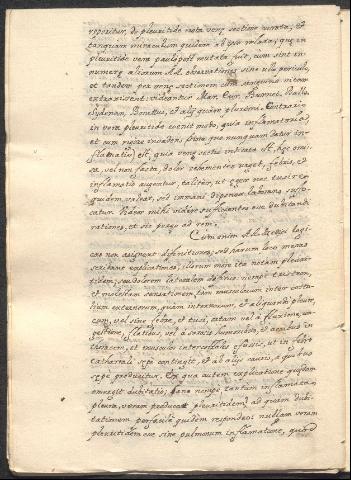 repetitur, de pleuritide nota venę sectione curata, et
tanquam miraculum quidem ab ipso relata; que in
pleuritide vera paulo post mutata fuit, cum sint in-
numerę aliorum AA. observationes sine ullo periculo,
et tandem per venę sectionem cum sanguine vitam
extraxissent: videantur Mar. Cur. Burnet, Ballo,
Sydenam, Bonettus, et alij quàm plurimi. Contrariũ
in vera pleuritide evenit morbo, quia inflamatorius
et cum ruine invadens sine qua nunquam datur in-
flamatio est, quia venę sectio indicata est, hęc omi-
sa, vel non facta, dolor vehementer viget, febris, et
inflamatio augentur, taliter, ut eger nec tussire
quidem valeat, sed immani dispnea laborans suffo-
catur. Hadem mihi videntur sufficientes ove dubitandi
rationes, et sic pergo ad rem.
Cum enim AA. Medici logi-
cas non assignent difinitiones, sed harum loco meras
rei dant explicationes, illorum more ita notam pleuri-
tidem, seu dolorem lateralem
et molestam sensationem, tam musculorum inter costa-
lium externorum, quàm internorum, et aliquando pleurę,
cum, vel sine febre, et tussi, natam vel à fluxione, con-
gestione, flatibus, vel à serosis humoribus, et acribus in
thoracem, et musculos intercostales effusis, ut in febre
catharrali sępe contingit, et ab alijs causis, à quibus
sępe producitur. Ex qua autem explicatione quędam
emergit dubitatio; sane nempè, tantum inflamata
pleura, veram producat pleuritidem? ad quam dubi-
tationem perfacilè quidem respondeo: nullam veram
pleuritidem esse sine pulmonum inflamatione, quod